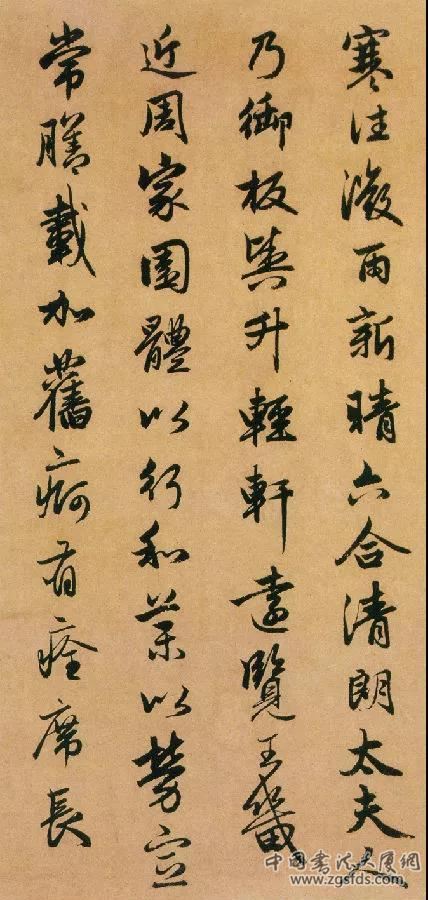 寒往微雨新晴六合清朗太夫人
乃御板輿升輕軒遠覽王畿
近周家園體以行和藥以勞宣
常膳載加舊痾有痊席長
中國書法大厦網
www.zgsfds.com